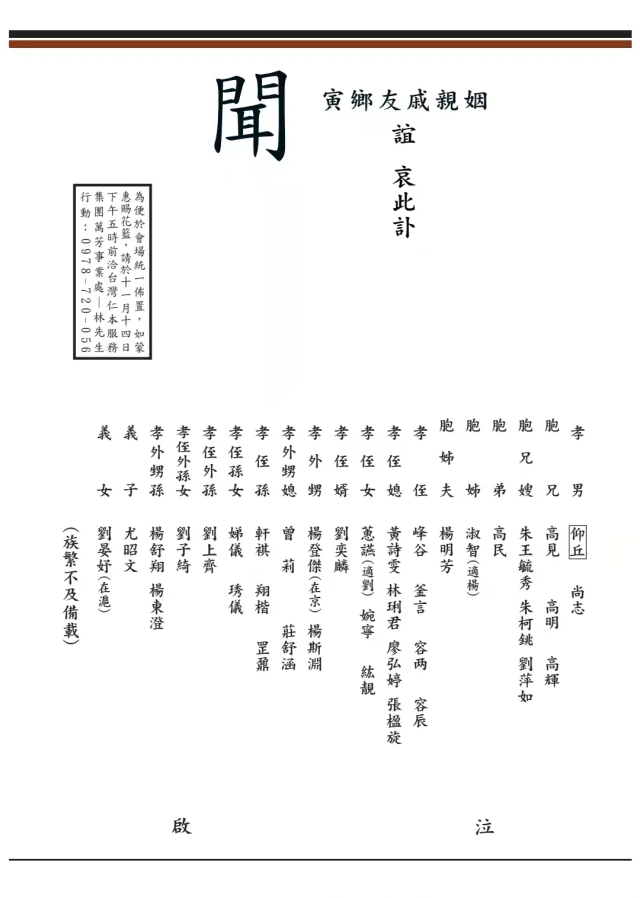 聞
寅鄉友戚親姻
誼
哀此訃
為便於會場統一佈置,如蒙
惠賜花籃,請於十一月十四日
下午五時前洽台灣仁本服務
集團萬芳事業處—林先生
行動:0978-720-056
孝男 仰丘 尚志
胞兄 高見 高明 高輝
胞兄嫂 朱王毓秀 朱柯銚 劉萍如
胞弟 高民
胞姊 淑智(適楊)
胞姊夫 楊明芳
孝侄 峰谷 釜言 容两 容辰
孝侄媳 黃詩雯 林琍君 廖弘婷 張楹旋
孝侄女 蕙讌(適劉) 婉寧 紘靚
孝侄婿 劉奕麟
孝外甥 楊登傑(在京) 楊斯淵
孝外甥媳 曾莉 莊舒涵
孝侄孫 軒祺 翔楷 罡鼐
孝侄孫女 娣儀 琇儀
孝侄外孫 劉上齊
孝侄外孫女 劉子綺
孝外甥孫 楊舒翔 楊東澄
義子 尤昭文
義女 劉晏妤(在滬)
(族繁不及備載)
泣啟